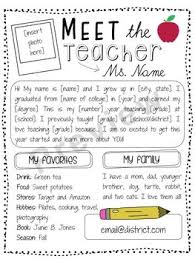 [insert
photo
here]
MEET the
Teacher
Ms. Name
Hi My name is [name] and I grew up in [city, state]. I
graduated from [name of college] in [year]. I earned my
[degree]. This is my [number] year teaching [grade] at
[school]. In [year], I graduated from [school] with
[degree] in [subject]. Prior to [school] I taught [grade] for
[number] years at [school] in [district]. I also loved
teaching [grade] because []. I am so excited to get
started this year and learn all about you!
My Favorites
My Family
Drink: Green tea
Food: Sweet potatoes
Stores: Target, Amazon
Hobbies: Pilates, cooking,
photography
Book: Junie B. Jones
Season: Fall
I have a mom, dad, younger
brother, dog, turtle, rabbit,
and two cats. I love them all
a lot!
email@district.com